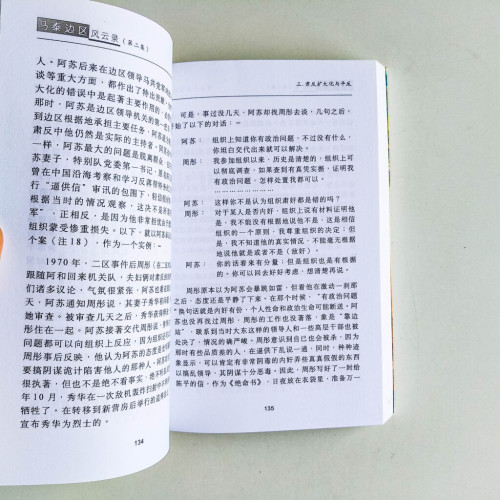 马泰边区风云录（第二集）
人。阿苏后来在边区领导马共党
谈等重大方面，都作出了特出
大化的错误中是起著主要作用的
那时，阿苏是边区领导机关的第一
到边区根据地承担主要任务，阿苏
肃反中他仍然是实际的主持者，
一样，阿苏最大的问题是脱离群众
苏妻子，特别队党委第一书记，
曾在中国沿海考察和学习反蒋
行"逼供信"审讯的包围下，
根据当时的情况观察，这决不
军"，正相反，是因为他非常担
组织蒙受惨重损失。以下，就以阿苏
个案（注18），作为一个实例：-
1970年，二区事件后周彤（在二
跟随阿和回来机关队，夫妇俩对肃
们诸多议论，气氛很紧张。阿苏
天，阿苏通知周彤说，其妻子秀华
她审查。被审查几天之后，秀华
彤住在一起。阿苏接著交代周彤说
问题都可以向组织上反应，因为
周彤事后反映，他认为阿苏的态度
要搞阴谋诡计陷害他人的那种人。
很执著，但也不是绝不看事实，绝不
年10月，秀华在一次敌机轰炸扫射
牺牲了。在转移到新营房后举行的追
宣布秀华为烈士的。
134
三、肃反扩大化与平反
可是，事过没几天，阿苏却找周彤去谈，几句之后，
始了以下的对话：-
阿苏： 组织上知道你有政治问题，不过没有什么，
你坦白交代出来就可以解决。
周彤： 我参加组织以来，历史是清楚的，组织上可
以彻底调查，如果查到有真凭实据，证明我
有政治问题，怎样处置我都可以。
………………………
阿苏： 这样你不是认为组织肃奸都是错的吗？
周彤： 对于某人是否内奸，组织上说有材料证明他
是，我不能没有根据地说他不是，这是相信
组织的一个原则，我尊重组织的决定；但
是，我不知道他的真实情况，不能毫无根据
地说他就是或者不是（敌奸）。
阿苏： 你的话看来有分量，但是组织也是有根据
的。你可以回去好好考虑，想清楚再说。
周彤原本以为阿苏会暴跳如雷，但看他在激动一刹那
之后，态度还是平静了下来。在那个时候，"有政治问题
"换句话就是内奸有份，个人性命和政治生命可能断送。阿
苏也没再找过周彤。周彤的工作也没著落，象是"靠边
站"，联系到当时大东这样的领导人和一些高层干部也被
处决了，情况的确严峻。周彤意识到自己也会被杀，因为
那时有些品质差的人，在逼供下乱说一通，同时，种种迹
象显示，可以肯定有非常阴毒的内奸弄些真真假假的东西
以搞乱领导，其阴谋十分恶毒。因此，周彤写好了一封给
陈平的信，作为《绝命书》，日夜放在衣袋里，准备万一
135